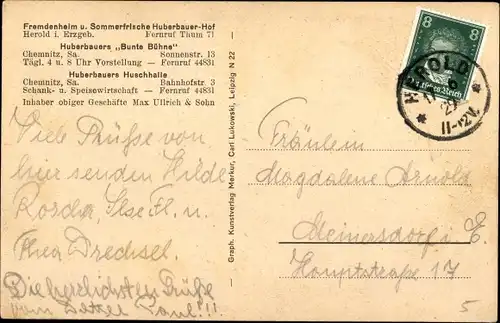 Fremdenheim u. Sommerfrische Huberbauer-Hof
Herold i. Erzgeb. Fernruf Thum 71
Huberbauers „Bunte Bühne"
Chemnitz, Sa. Sonnenstr. 13
Tägl. 4 u. 8 Uhr Vorstellung — Fernruf 44831
Huberbauers Huschhalle
Chemnitz, Sa. Bahnhofstr. 3
Schank- u. Speisewirtschaft — Fernruf 44831
Inhaber obiger Geschäfte Max Ullrich & Sohn
Viele Grüße von
hier senden Hilde
Ilse Fl. u.
Thea Drechsel.
Die herzlichsten Grüße
vom Paul!!!
Graph. Kunstverlag Merkur, Carl Lukowski, Leipzig N 22
8 8
Deutsches Reich
HEROLD
11-12V.
Fräulein
Magdalene Arnold
Meinersdorf i. E.
Hauptstraße 17
5